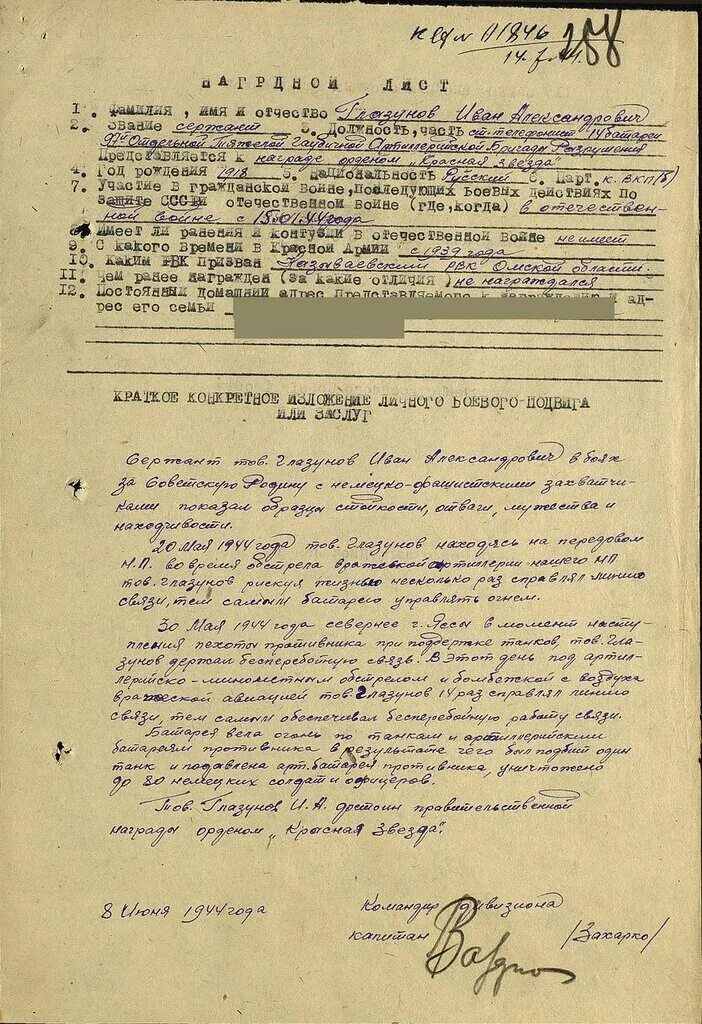 188
14.7.44.
НАГРДНОЙ ЛИСТ
1. Фамилия, имя и отчество Глазунов Иван Александрович
2. Звание сержант 3. Должность, часть ст. телефонист 14 батареи
Отдельной Тяжелой Гаубичной Артиллерийской Бригады Разрушения
Представляется к награде орденом „Красная звезда"
4. Год рождения 1918 5. Национальность Русский 6. Парт. к. ВКП(б)
7. Участие в гражданской войне, последующих боевых действиях по
защите СССР и отечественной войне (где, когда) в отечествен-
ной войне с 15.01.44 года
8. Имеет ли ранения и контузии в отечественной войне не имеет
9. С какого времени в Красной Армии с 1939 года
10. Каким РВК призван Называевский РВК Омской области.
11. Чем ранее награжден (за какие отличия) не награждался
12. Постоянный домашний адрес представляемого к награждению и ад-
рес его семьи
КРАТКОЕ КОНКРЕТНОЕ ИЗЛОЖЕНИЕ ЛИЧНОГО БОЕВОГО ПОДВИГА
ИЛИ ЗАСЛУГ
Сержант тов. Глазунов Иван Александрович в боях
за Советскую Родину с немецко-фашистскими захватчи-
ками показал образцы стойкости, отваги, мужества и
находчивости.
20 Мая 1944 года тов. Глазунов находясь на передовом
Н.П. во время обстрела вражеской артиллерии нашего НП
тов. Глазунов рискуя жизнью несколько раз справлял линию
связи, тем самым батарею управлять огнем.
30 Мая 1944 года севернее г. Яссы в момент насту-
пления пехоты противника при поддержке танков, тов. Гла-
зунов держал бесперебойную связь. В этот день под артил-
лерийско-минометным обстрелом и бомбежкой с воздуха
вражеской авиацией тов. Глазунов 14 раз справлял линию
связи, тем самым обеспечивал бесперебойную работу связи.
Батарея вела огонь по танкам и артиллерийским
батареям противника в результате чего был подбит один
танк и подавлена арт. батарея противника, уничтожено
до 80 немецких солдат и офицеров.
Тов. Глазунов И.А. достоин правительственной
награды орденом „Красная Звезда".
8 Июня 1944 года
Командир дивизиона
капитан /Захарко/